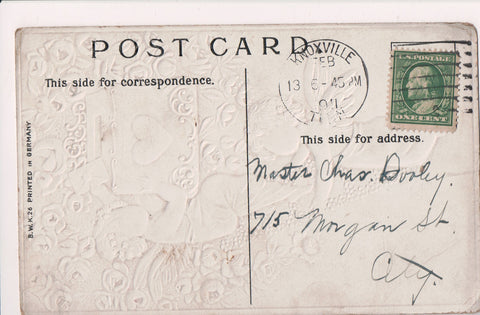 POST CARD
This side for correspondence.
KNOXVILLE
FEB
13 6-45 PM
TENN.
U.S. POSTAGE
ONE CENT
This side for address.
Master Chas. Dooley.
715 Morgan St.
City.
B.W.K.26 PRINTED IN GERMANY